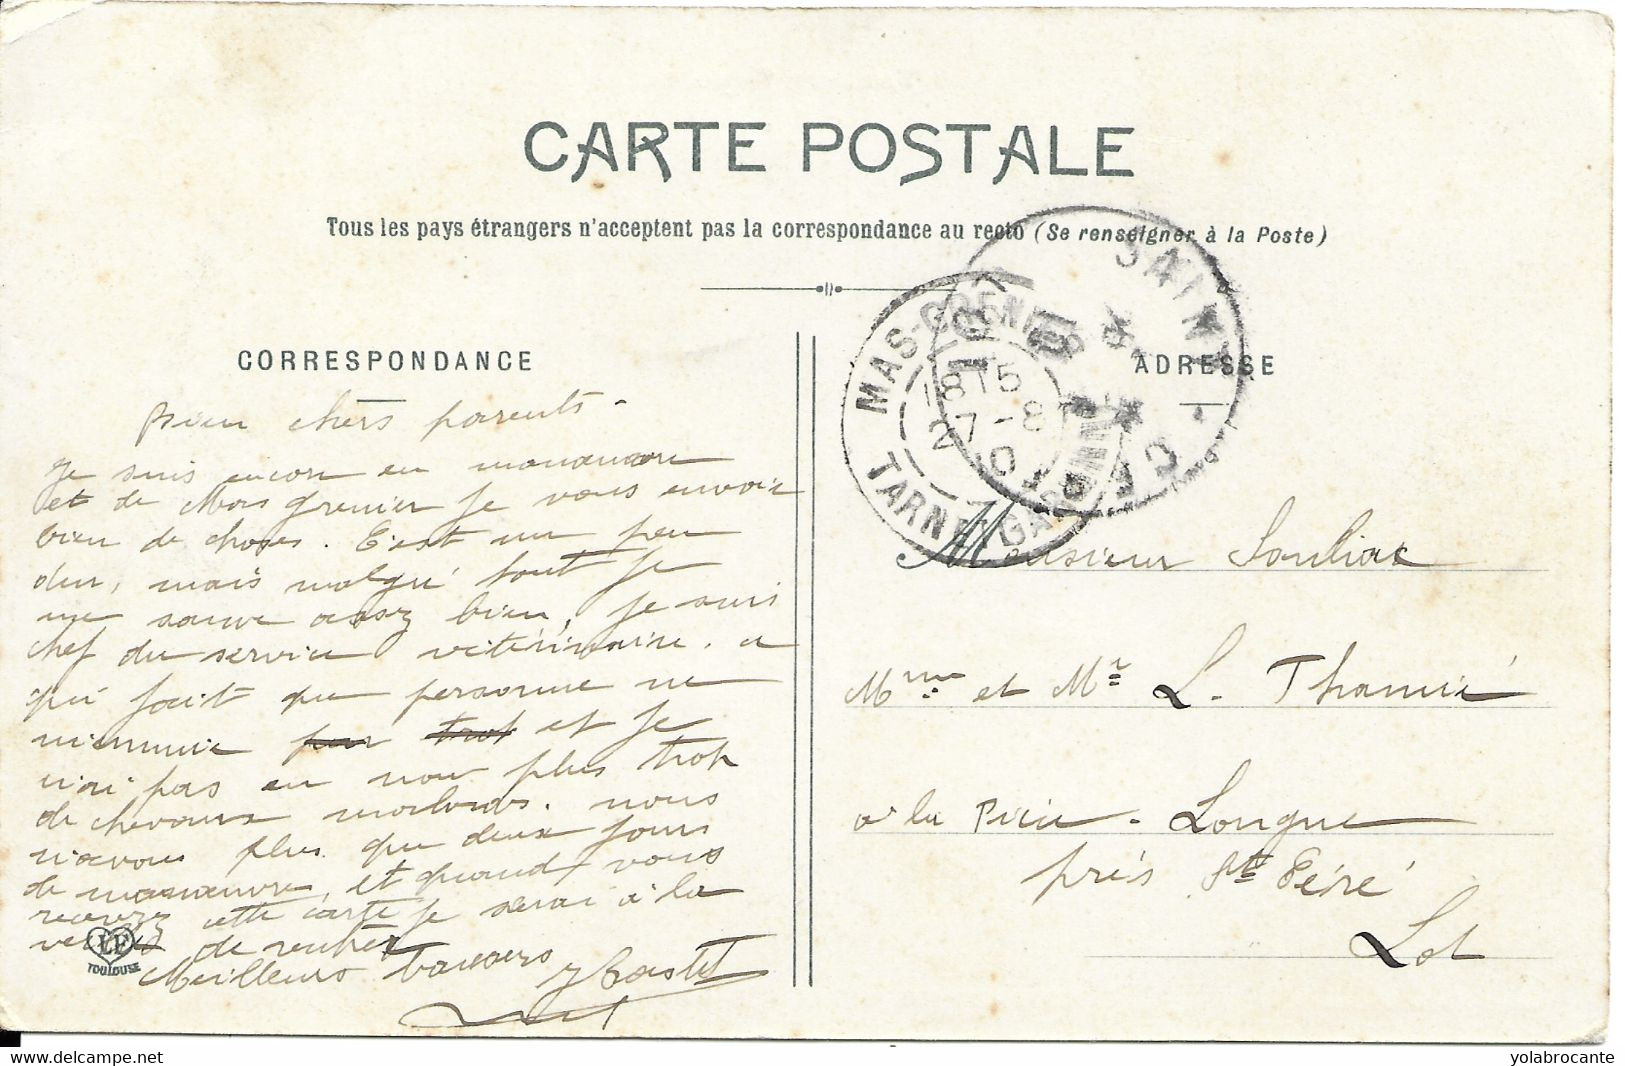 CARTE POSTALE
Tous les pays étrangers n'acceptent pas la correspondance au recto (Se renseigner à la Poste)
CORRESPONDANCE
Bien chers parents.
Je suis encore en manœuvre
et de Mas grenier je vous envoie
bien de choses. C'est un peu
dur, mais malgré tout je
me sauve assez bien, je suis
chef du service vétérinaire. ce
qui fait que personne ne
m'ennuie et je
n'ai pas eu non plus trop
de chevaux malades. nous
n'avons plus que deux jours
de manœuvre, et quand vous
recevrez cette carte je serai à la
veille de rentrer
Meilleurs baisers
LF
TOULOUSE
ADRESSE
MAS-GRENIER
TARN-ET-GARONNE
SAINT
Monsieur Souliac
Mme et Mr L. Thamié
à la Pièce-Longue
près St Céré
Lot
delcampe.net
yolabrocante